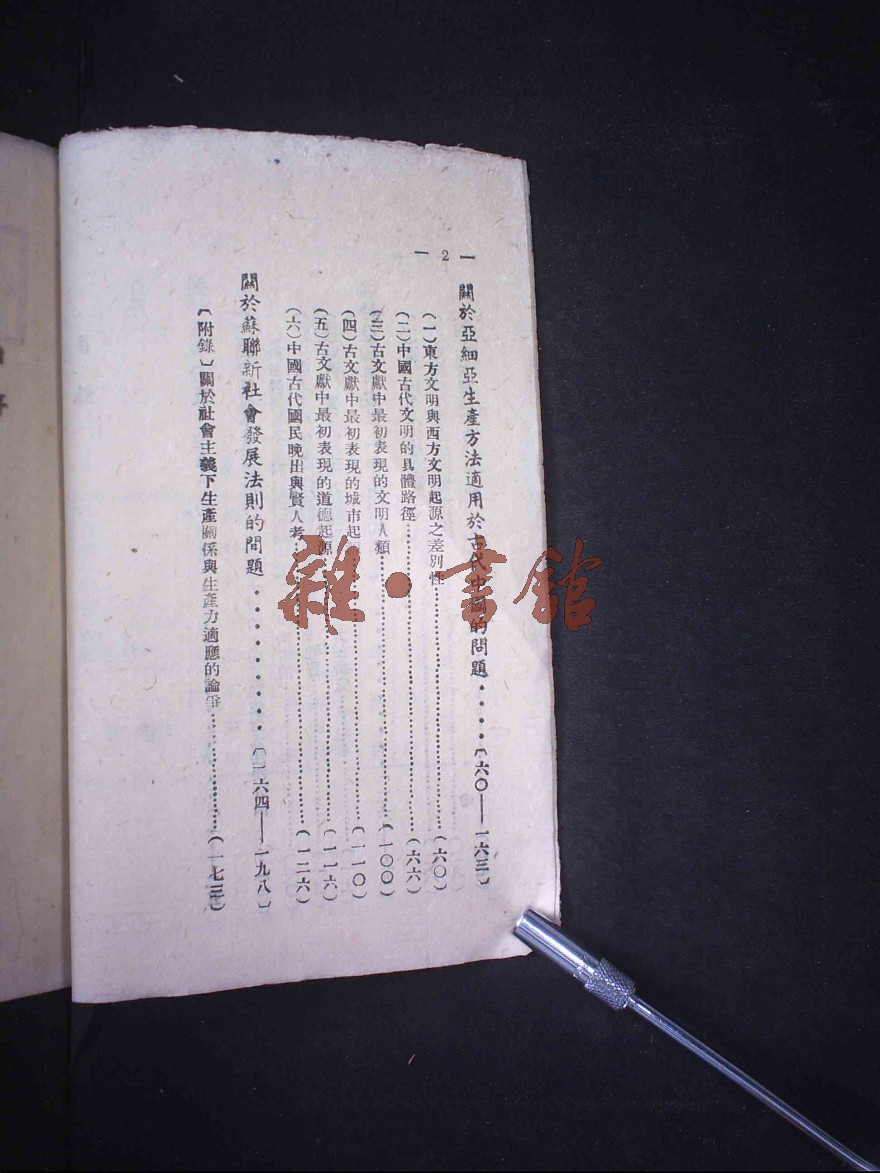 — 2 —
關於亞細亞生產方法適用於古代中國的問題・・・・〔六〇——一六三〕
(一)東方文明與西方文明起源之差別性……………(六〇)
(二)中國古代文明的具體路徑……………(六六)
(三)古文獻中最初表現的文明人類……………(一〇〇)
(四)古文獻中最初表現的城市起……………(一一〇)
(五)古文獻中最初表現的道德起源……………(一一六)
(六)中國古代國民晚出與賢人考……………(一二六)
關於蘇聯新社會發展法則的問題・・・・・・・・〔一六四——一九八〕
〔附錄〕關於社會主義下生產關係與生產力適應的論爭……………(一七三)
雜・書館